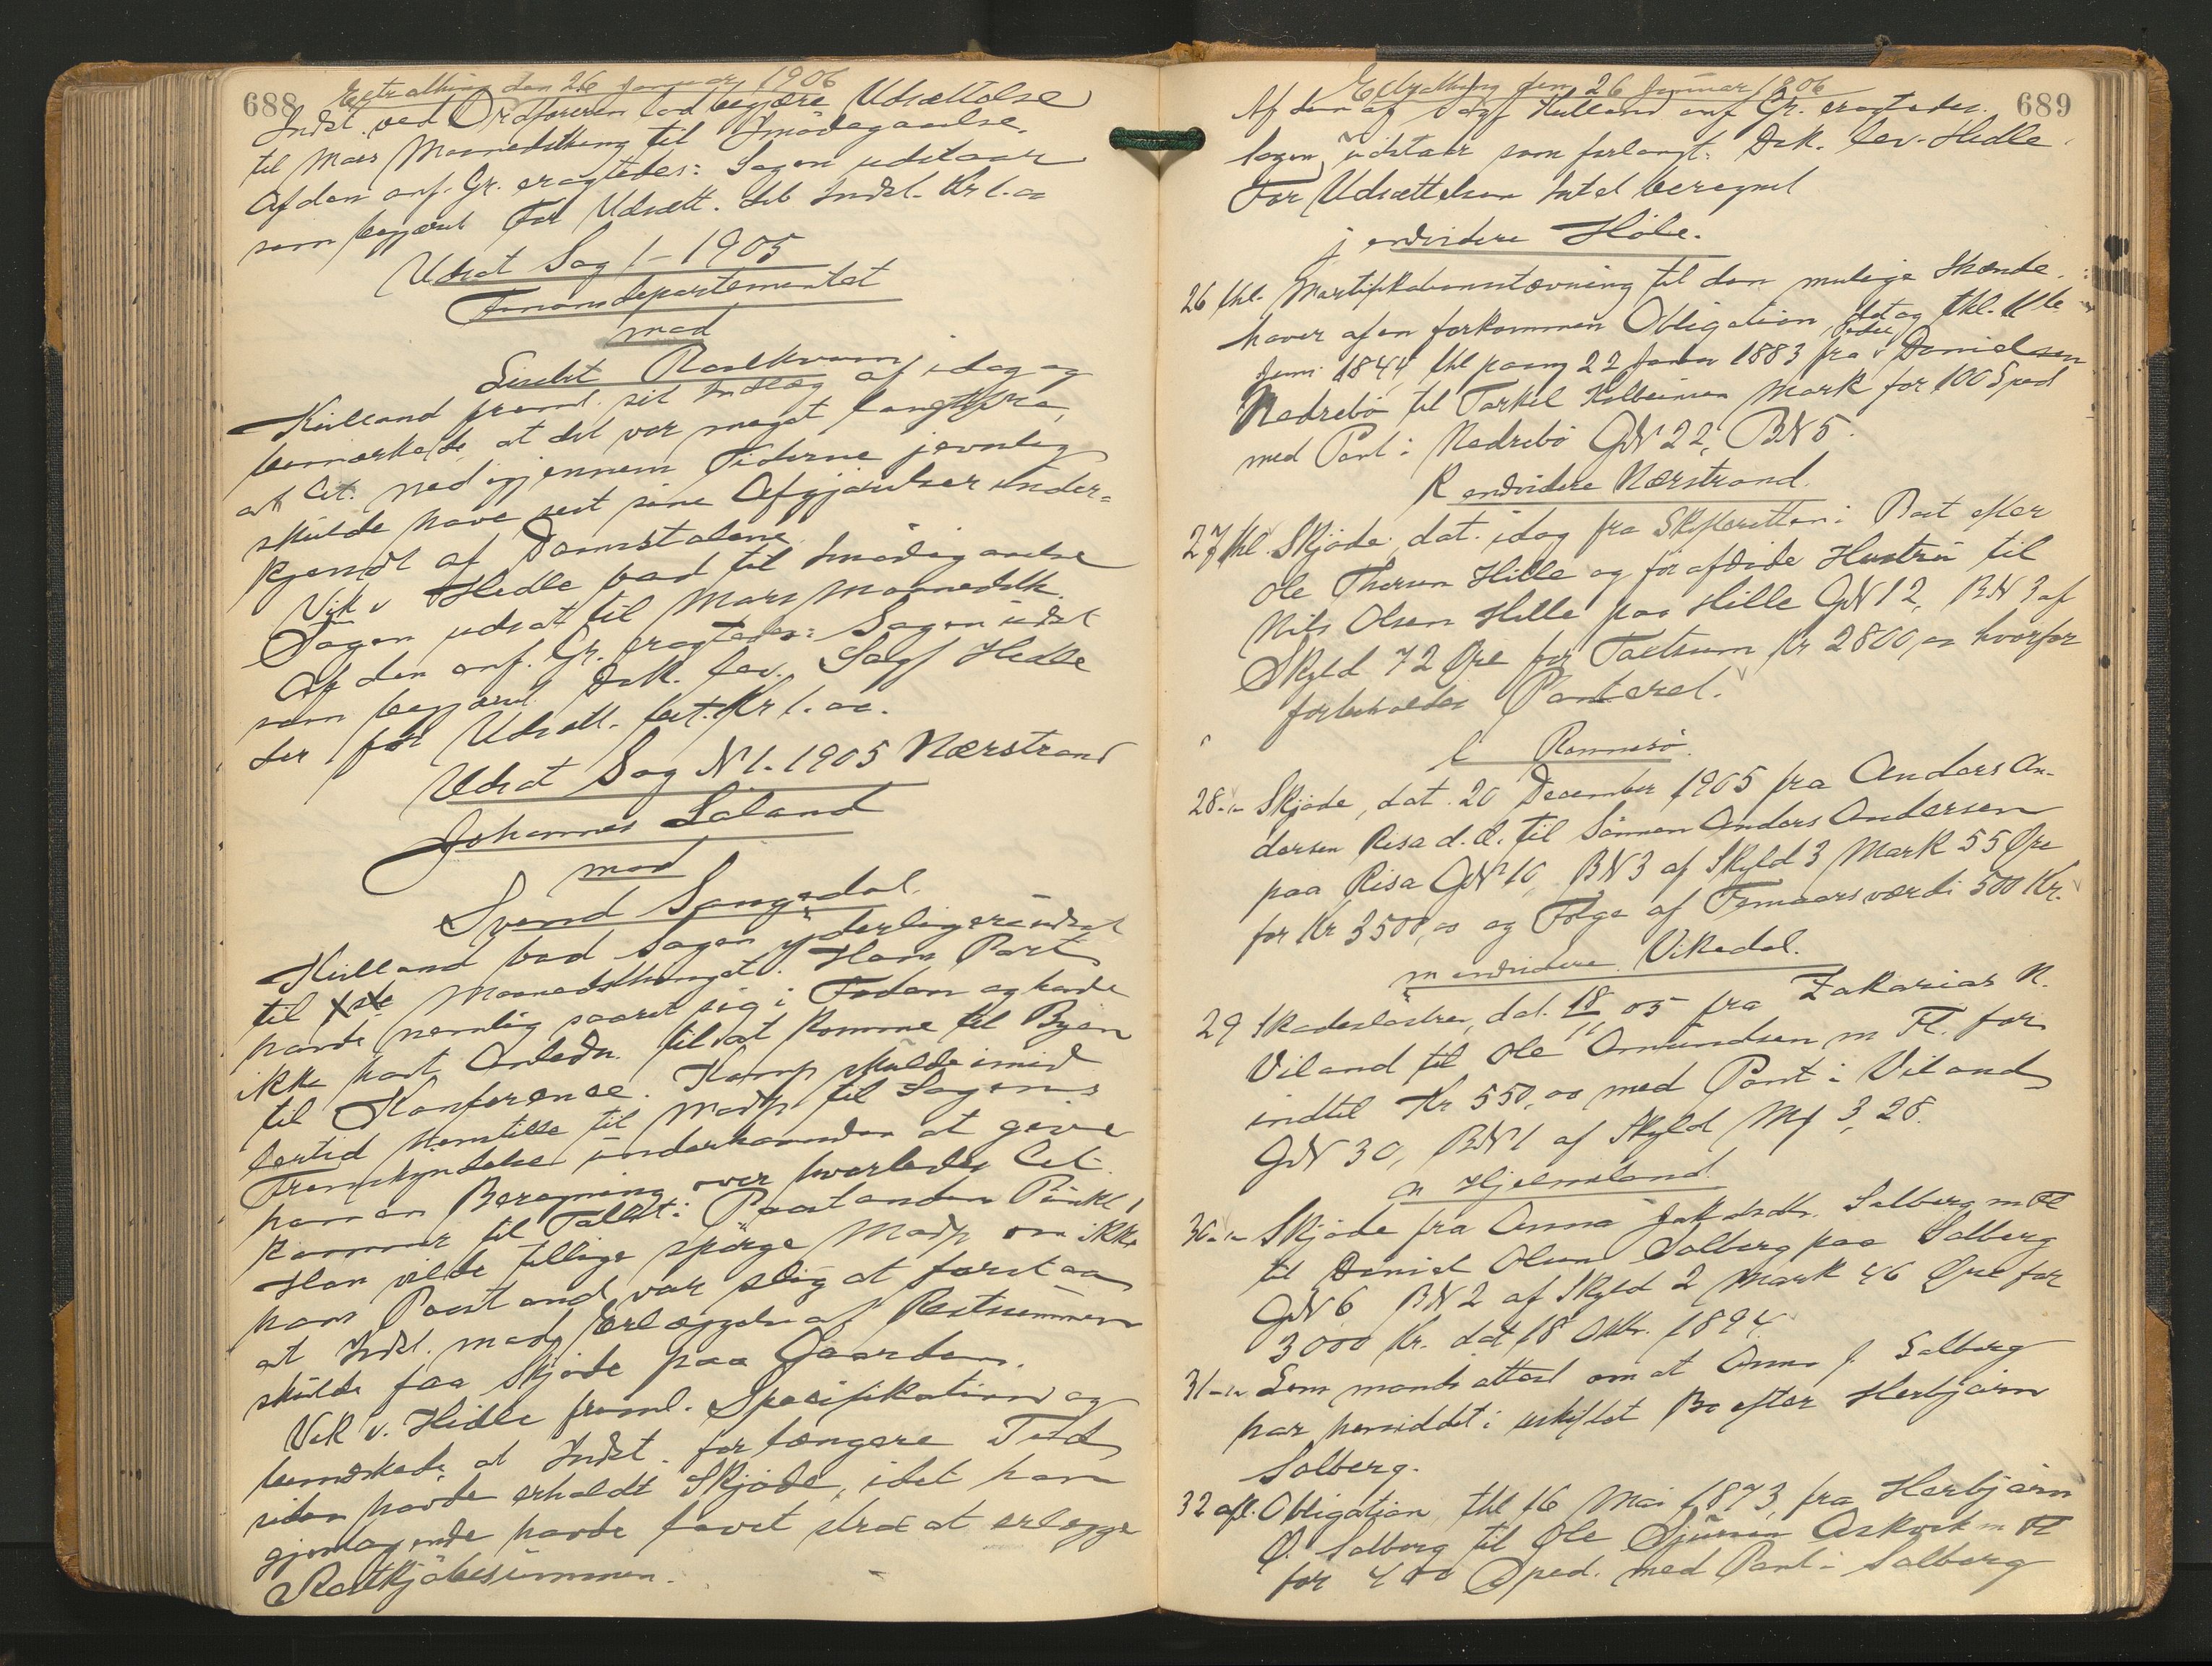 688
Extrathing den 26 Januar 1906
Indst. ved Ordföreren lod begjære Udsættelse
til Mars Maanedsthing til Imödegaaelse.
Af den anf. Gr. eragtedes: Sagen udstaar
som begjæret. For Udsætt. deb Indst. Kr 1.00
Udsat Sag 1 - 1905
Finansdepartementet
mod
Raelkvam
Kielland freml. sit Indlæg af idag og
bemærkede, at det var meget langt fra,
at Cit. ned igjennem Tiderne jevnlig
skulde have seet sine Afgjørelser under=
kjendt af Domstolene.
Vik v Hidle bad til Imödegaaelse
Sagen udsat til Mars Maanedsth.
Af den anf. Gr. eragtedes: Sagen udst
som begjært. Dok. lev. Sagf Hidle
der for Udsætt. bet. Kr 1.00.
Udsat Sag N 1. 1905 Nærstrand
Johannes Laland
mod
Svend Sangedal.
Kielland bad Sagen yderligere udsat
til 1ste Maanedsthinget. Hans Part
havde nemlig saaret sig i Foden og havde
ikke havt Anledn. til at komme til Byen
til Konference. Komp skulde imid
lertid henstille til Modp til Sagens
Fremskyndelse underhaanden at give
ham en Beregning over hvorledes Cit.
kommer til Tallet i Paastanden Punkt 1
Han vilde tillige spörge Modp om ikke
hans Paastand var slig at forstaa
at Indst. mod Erlæggelse af Restsummen
skulde faa Skjöde paa Gaarden.
Vik v. Hidle freml. Specifikation og
bemærkede at Indst. for længere Tid
siden havde erholdt Skjöde, idet han
gjentagende havde lovet strax at erlægge
Restkjöbesummen.
689
Extrathing den 26 Januar 1906
Af den af Sagf Kielland anf Gr. eragtedes.
Sagen udstaar som forlangt. Dok. lev. Hidle.
For Udsættelsen Intet beregnet
j endvidere Höle.
26 thl. Mortifikationsstævning til den mulige Ihænde.
haver af en forkommen Obligation, dat og thl. 11te
Juni 1844, thl paany 22 1883 fra Peder Danielsen
Nedrebö til Torkel Kolbeinsen Mark for 100 Spd
med Pant i Nedrebö GN 22, BN 5.
k endvidere Nærstrand.
27 thl. Skjöde, dat. idag fra Skifteretten i Boet efter
Ole Thorsen Hille og för afdöde Hustru til
Nils Olsen Hille paa Hille GN 12, BN 3 af
Skyld 72 Øre for Taxtsum Kr 2800,00 hvorfor
forbeholdes Panteret.
l Rennesö.
28 - " - Skjöde, dat. 20 December 1905 fra Anders An-
dersen Risa d.æ. til Sönnen Anders Andersen
paa Risa GN 10 BN 3 af Skyld 3 Mark 55 Øre
for Kr 3500,00 og Følge af Femaarsværdi 500 Kr.
m endvidere Vikedal.
29 Skadeslösbrev, dat. 18/11 05 fra Zakarias N.
Viland til Ole Omundsen m Fl. for
indtil Kr 550,00 med Pant i Viland
GN 30, BN 1 af Skyld M 3,28.
n Hjelmeland.
30 - " - Skjöde fra Anna Jakobsdtr. Solberg m Fl
til Daniel Olsen Solberg paa Solberg
GN 6 BN 2 af Skyld 2 Mark 46 Øre for
3000 Kr. dat 18 Oktr. 1894.
31 - " - Lensmandsattest om at Anna J. Solberg
har hensiddet i uskiftet Bo efter Herbjörn
Solberg.
32 afl. Obligation, thl 16 Mai 1873, fra Herbjörn
Ø. Solberg til Ole Askvik m Fl
for 400 Spd. med Pant i Solberg